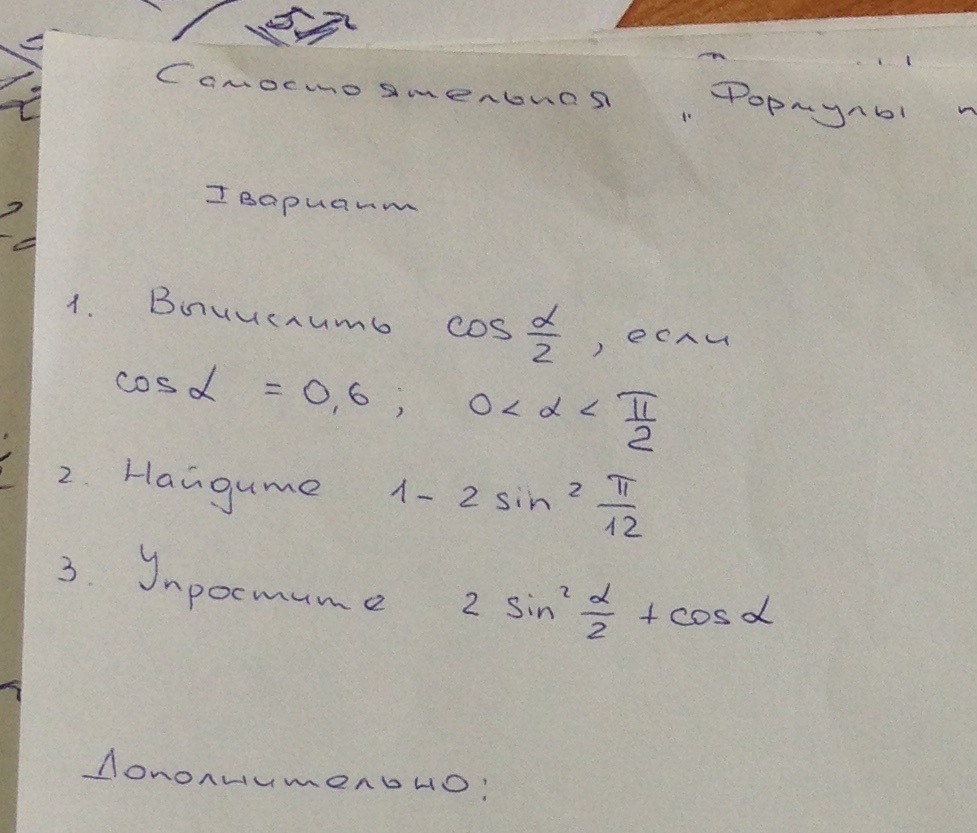 Самостоятельная „Формулы
I вариант
1. Вычислить cos α/2, если
cos α = 0,6; 0 < α < π/2
2. Найдите 1 - 2 sin² π/12
3. Упростите 2 sin² α/2 + cos α
Дополнительно: